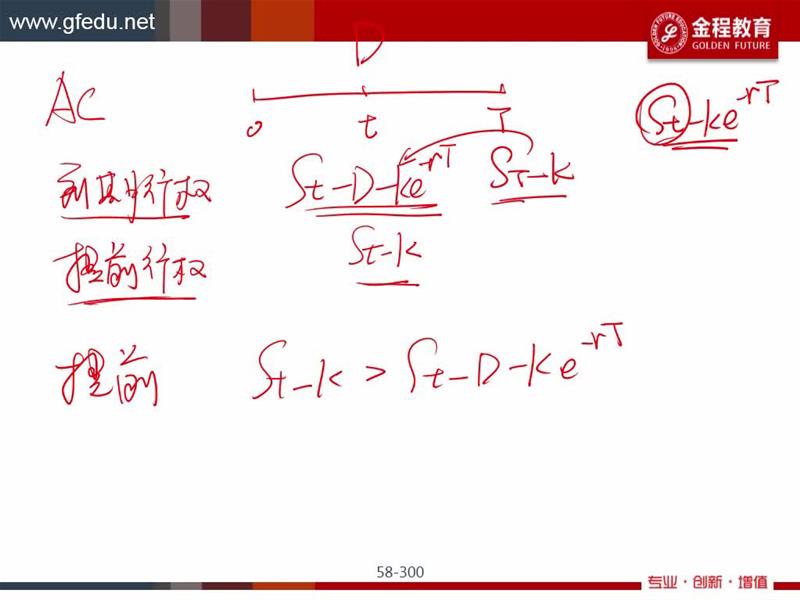 www.gfedu.net
金程教育
GOLDEN FUTURE
D
AC
0 t T
St-ke^-rT
到期行权 St-D-ke^-rT ST-k
提前行权 St-k
提前 St-k > St-D-ke^-rT
58-300
专业·创新·增值